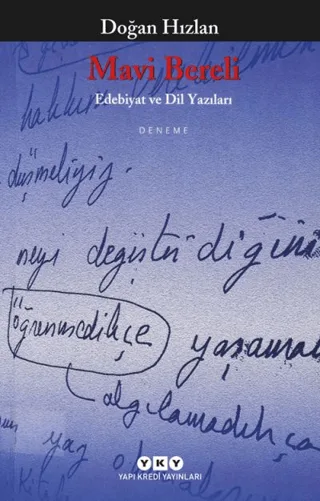 Doğan Hızlan
Mavi Bereli
Edebiyat ve Dil Yazıları
DENEME
düşmeliyiz.
neyi değiştirdiğini
öğrenmedikçe yaşama
algılamadıkça
yaz
YKY
YAPI KREDİ YAYINLARI